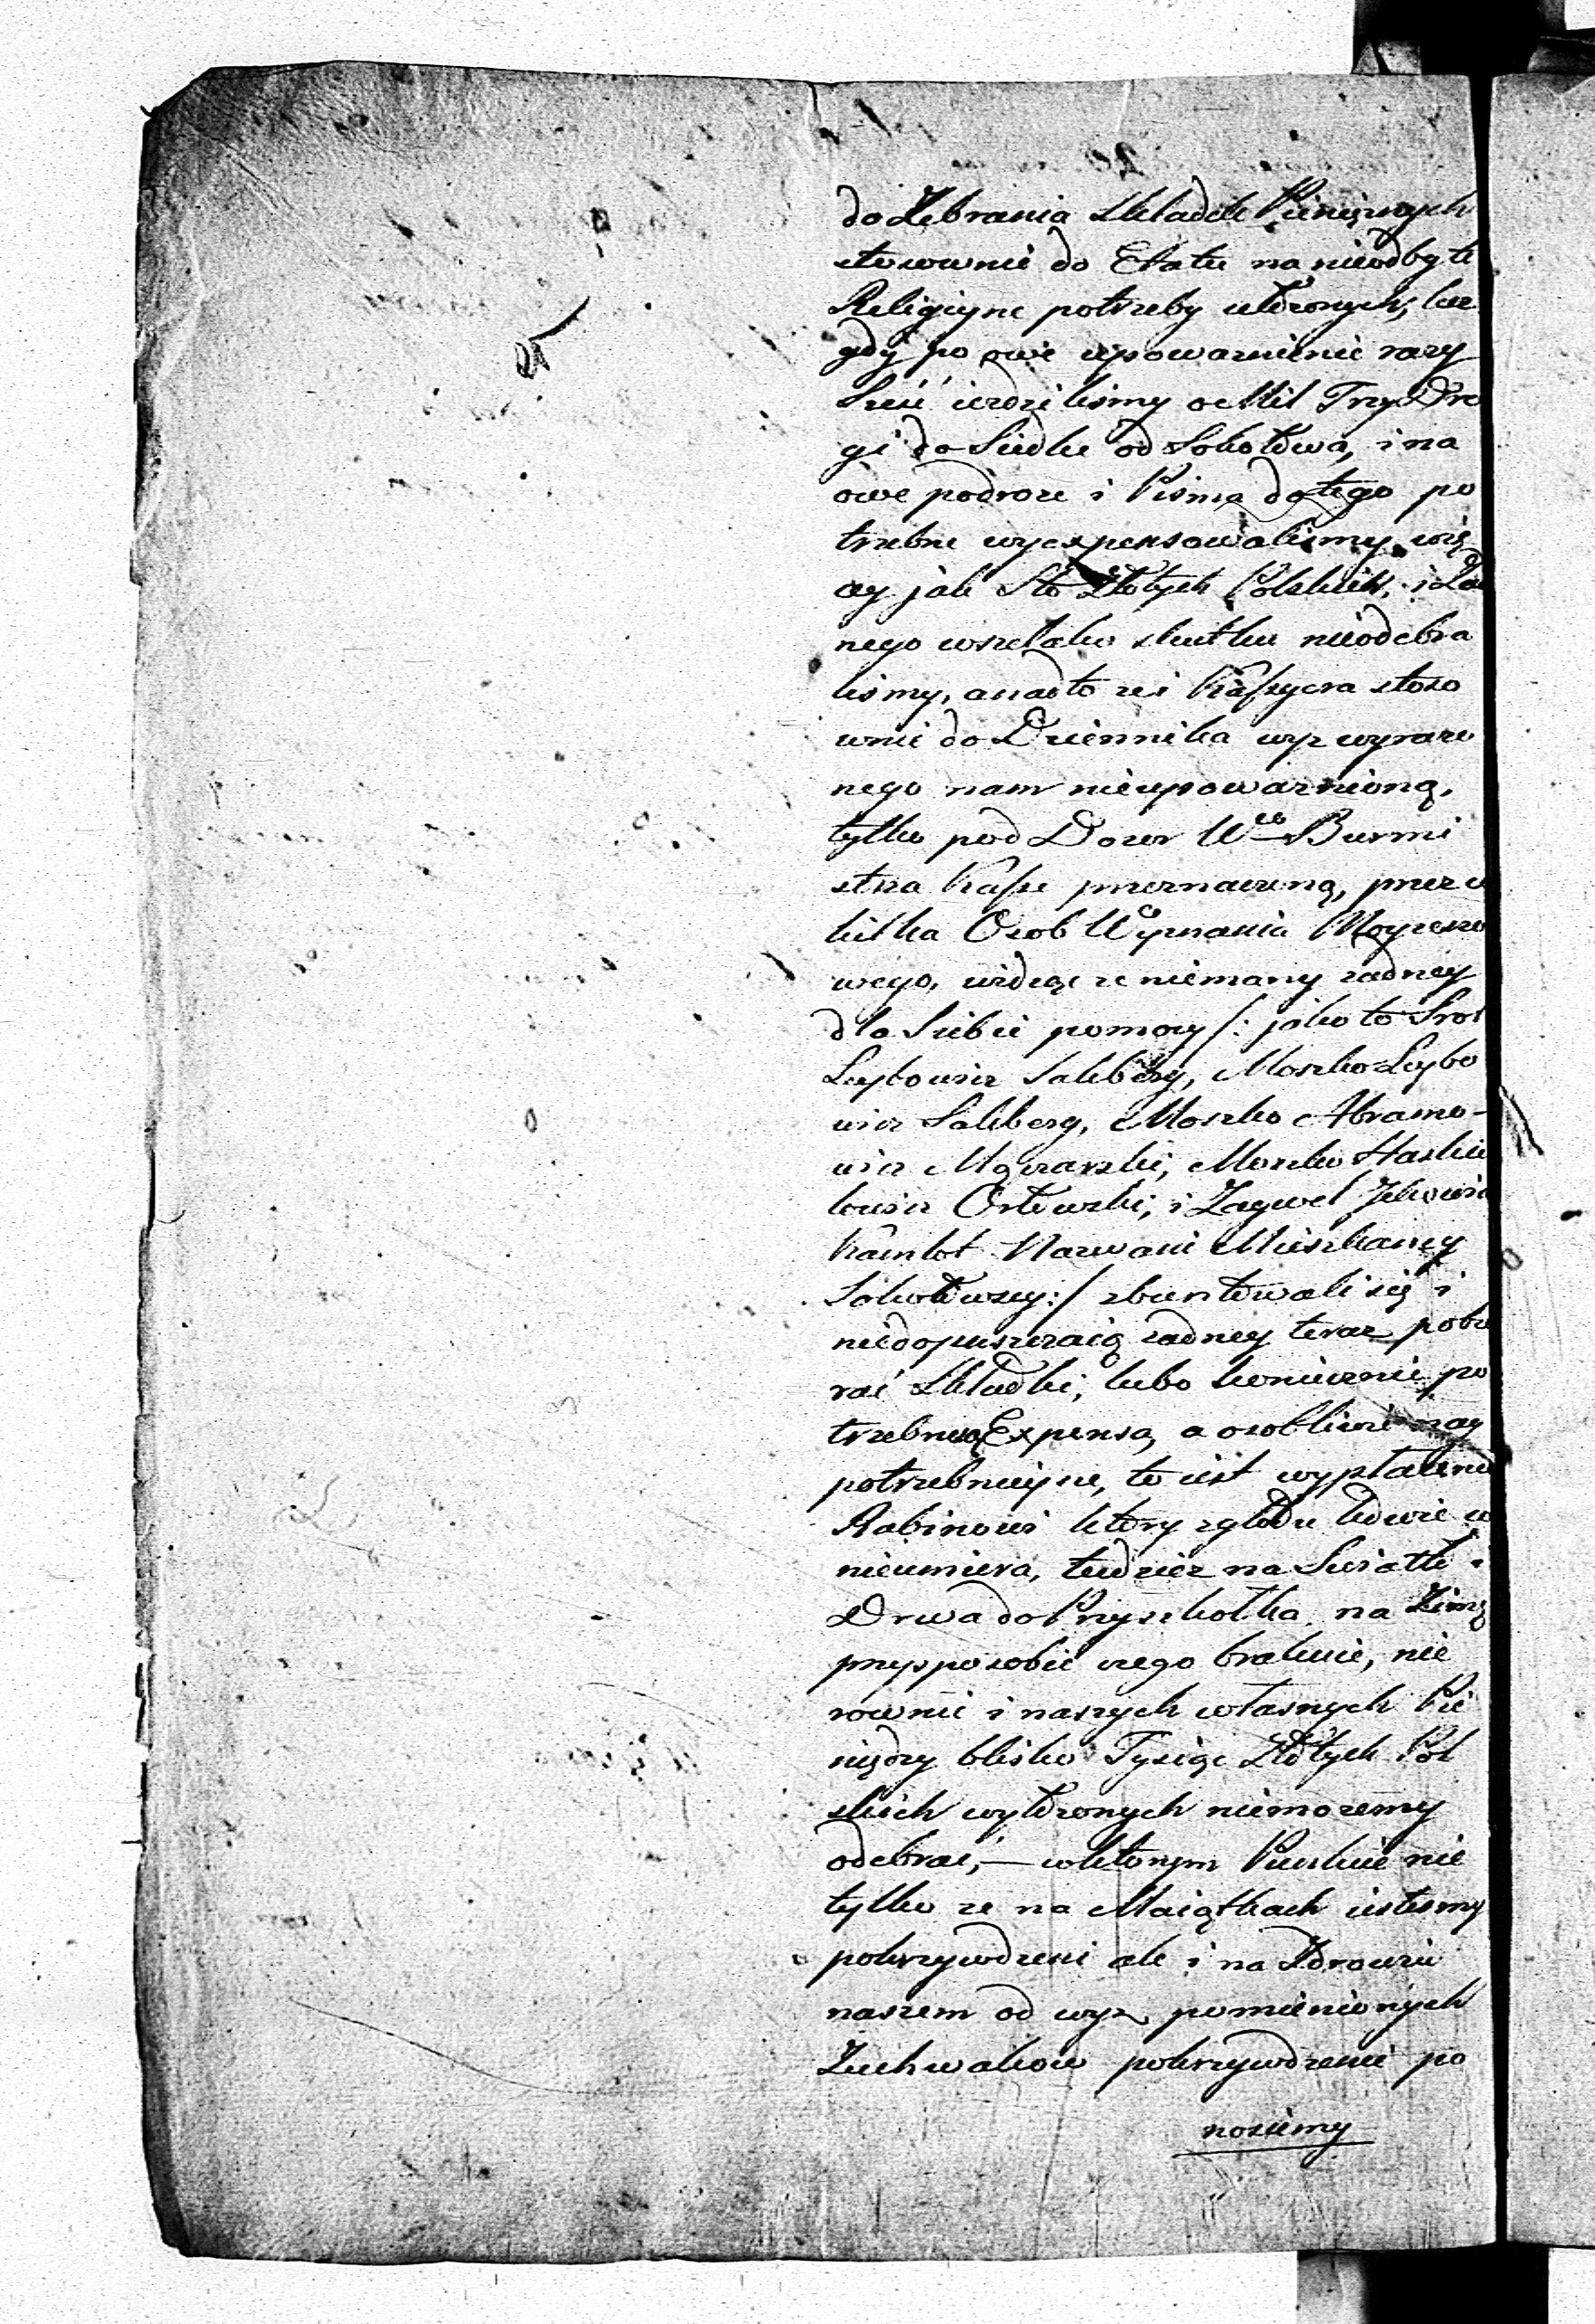 do Zebrania Składek Pieniężnych
stosownie do Etatu na nieodbyte
Religiyne potrzeby ułożonych, lecz
gdy po owe upoważnienie razy
Sześć ieździliśmy o Mil Trzy Dro
gi do Siedlec od Sokołowa, i na
owe podroże i Pisma do tego po
trzebne wyexpensowaliśmy wię
cey jak Sto Złotych Polskich, i Ża
nego wszelako skutku nieodebra
liśmy, a nadto że i Kassyera stoso
wnie do Dziennika wyż wyrażo
nego nam nieupoważnioną,
tylko pod Dozor Wgo Burmi
strza Kasse przeznaczoną, przez co
kilka Osob Wyznania Moyżeszo
wego, widząc że niemamy żadney
dla Siebie pomocy /: jako to Srol
Leybowicz Salzberg, Moszko Leybo
wicz Salzberg, Moszko Abramo-
wicz Mączarski, Moszko Haskie
lowicz Orłowski, i Zaywel Jckowicz
Kamlot Nazwani Mieszkancy
Sokołowscy :/ zbuntowali się i
niedopuszczaią żadney teraz pobie
rać Składki, lubo koniecznie po
trzebne są Expensa, a osobliwie nay
potrzebnieysze, to iest wypłacenie
Rabinowi ktory z głodu ledwie co
nieumiera, tudzież na Swiatło i
Drwa do Przyszkołka na Zimę
przysposobić czego brakuie, nie
rownie i naszych własnych Pie
niędzy blisko Tysiąc Złotych Pol
skich wyłożonych niemożemy
odebrać, — w którym Punkcie nie
tylko że na Maiątkach iesteśmy
pokrzywdzeni ale i na Zdrowiu
naszem od wyż pomienionych
Zuchwalcow pokrzywdzenie po
nosiemy